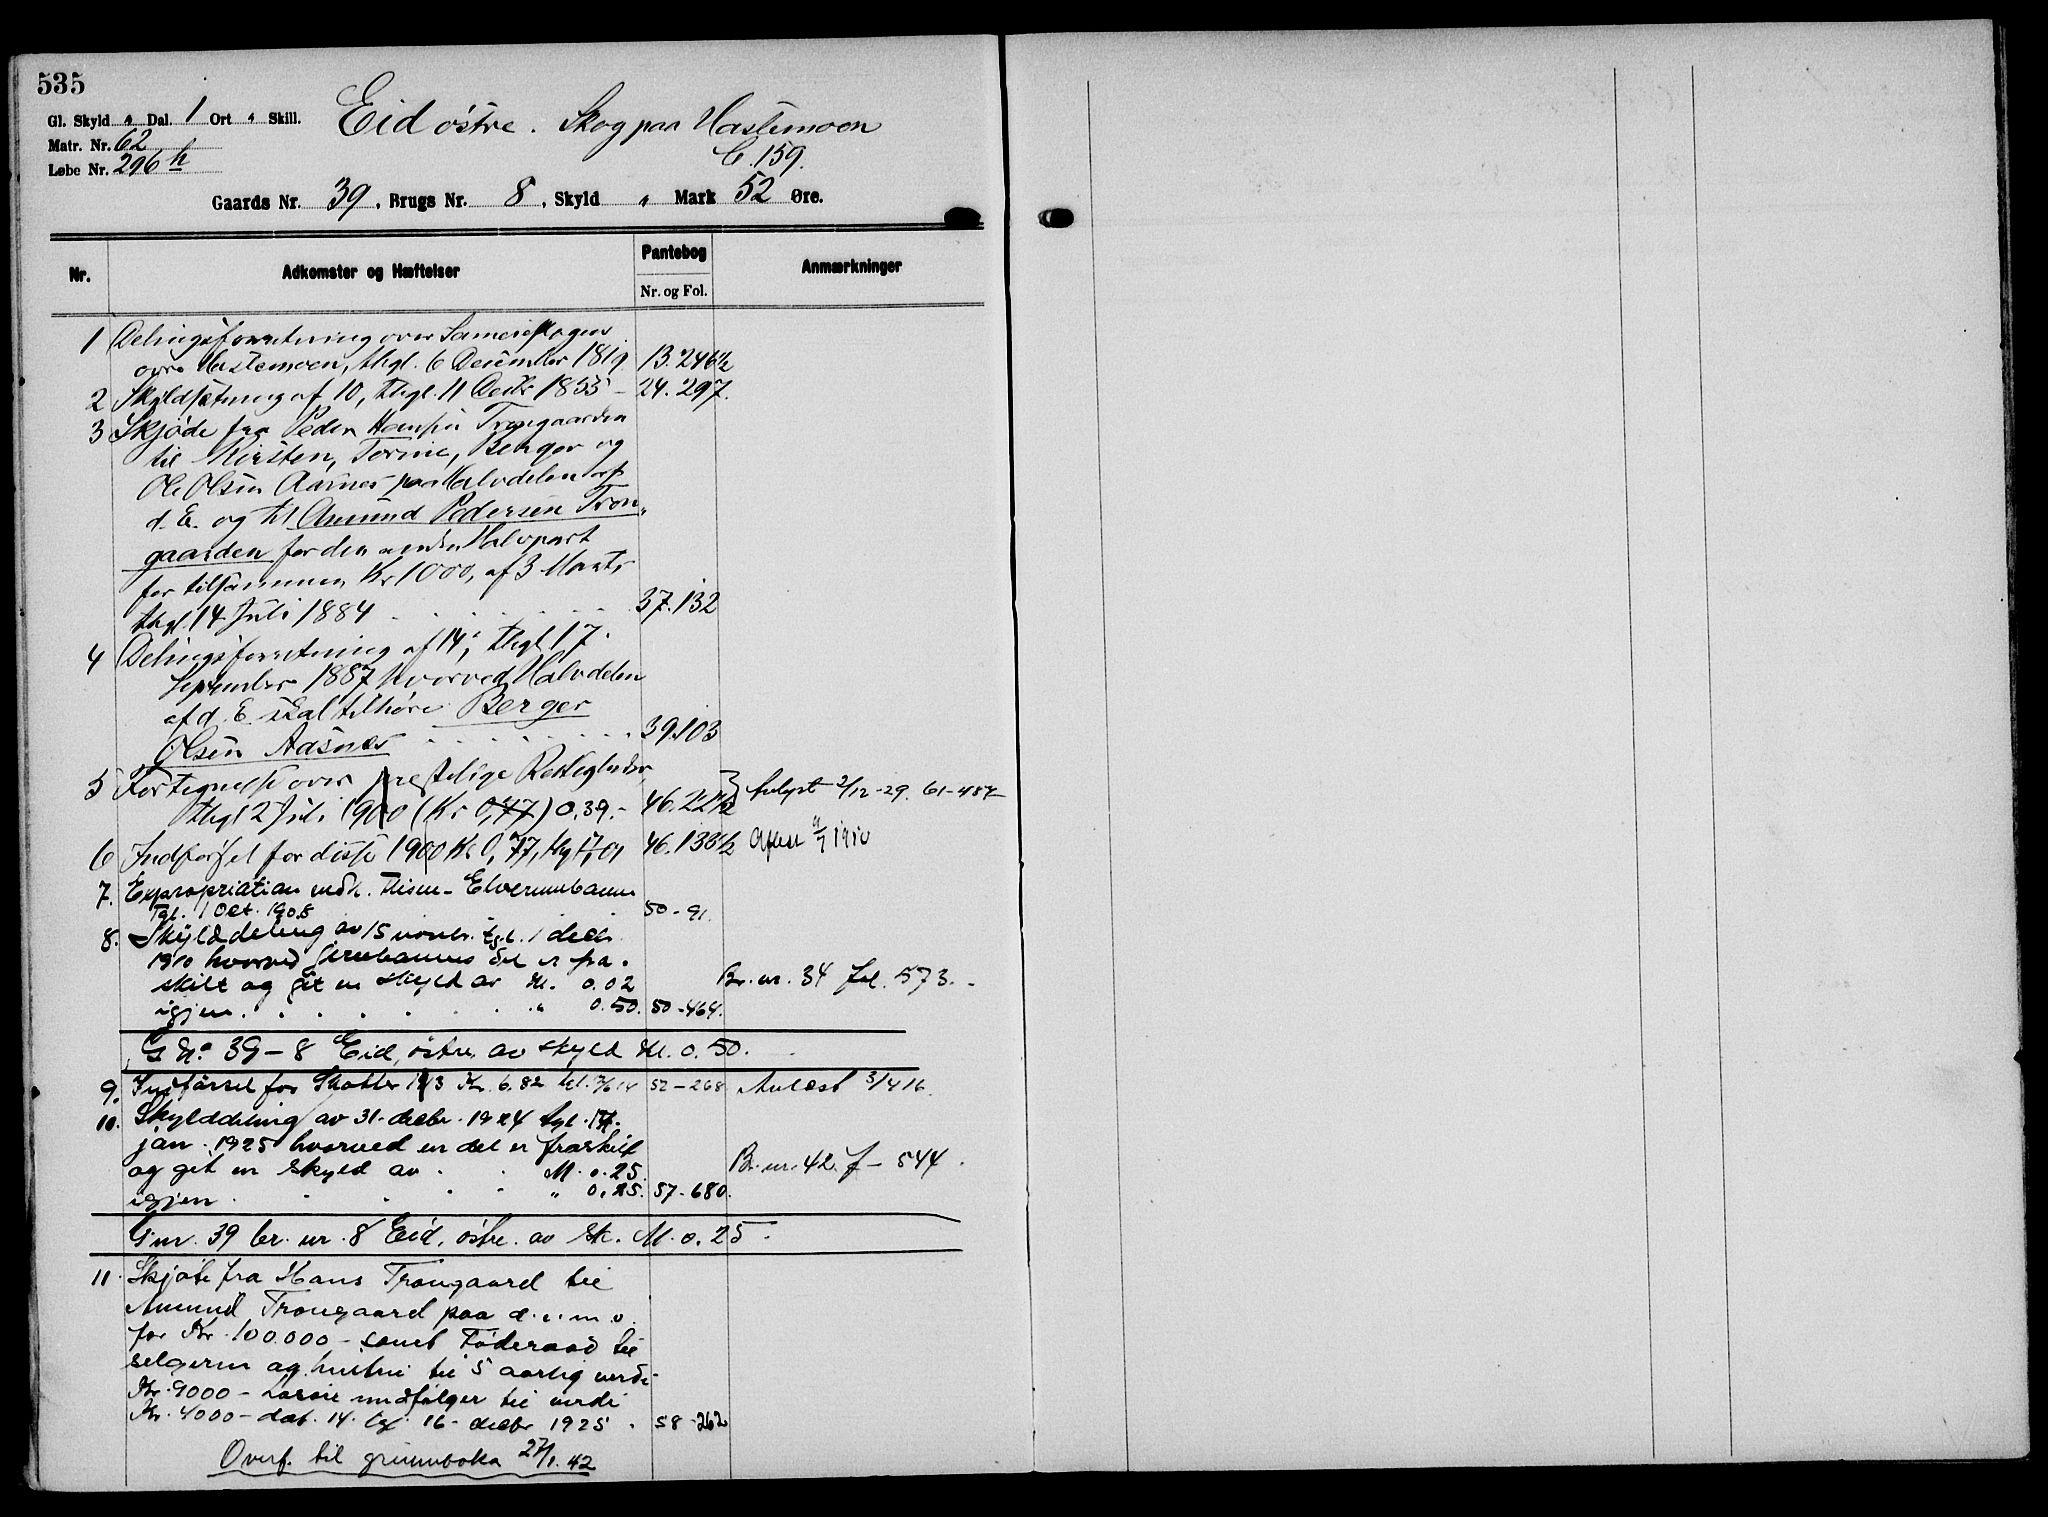 535
Gl. Skyld " Dal. 1 Ort " Skill.
Matr. Nr. 62
Løbe Nr. 296 h
Eid østre. Skog paa Hastemoen
C. 159.
Gaards Nr. 39, Brugs Nr. 8, Skyld " Mark 52 Øre.
Nr. Adkomster og Hæftelser Pantebog Nr. og Fol. Anmærkninger
1 Delingsforretning over Sameieskogen
øvre Hastemoen, thgl. 6 December 1819 13.246½
2 Skyldsetning af 10, thgl. 11 Decbr 1855 - 24.297.
3 Skjøde fra Peder Hansen Trongaarden
til Kirsten, Torine, Berger og
Ole Olsen Aasnes paa Halvdelen af
d. E. og til Amund Pedersen Tron„
gaarden for den anden Halvpart
for tilsammen Kr 1000, af 3 Marts
thgl. 14 Juli 1884 37.132
4 Delingsforretning af 14, thgl 17.
September 1887 hvorved Halvdelen
af d. E. skal tilhøre Berger
Olsen Aasnes 39.103
5 Fortegnelse over Rettigheder
thgl 2 Juli 1900 (Kr 0,47) 0.39.- 46.22½ } Avlyst 2/12-29. 61-487
6 Indførsel for disse 1900 Kr 0,77, 46.138½ Aflæst 9/7 1910
7. Expropriation vedk. Elverumbanen
Tgl. 1 Oct. 1908 50-91.
8. Skylddeling av 15 novbr. tgl. 1 decbr
1910 hvorved Jernbanens del er fra-
skilt og git en skyld av M. 0.02 Br. nr. 34 fol. 573.-
igjen " 0.50. 50-464.
G No 39-8 Eid, østre, av skyld M. 0.50.
9. Indførsel for Skatter 1913 Kr. 6.82 tgl. 2/6 14 52-268 Avlæst 3/4 16.
10. Skylddeling av 31. decbr. 1924 tgl. 14.
jan. 1925 hvorved en del er fraskilt
og git en skyld av M. 0.25. Br. nr. 42 f- 544.
igjen " 0.25. 57-680.
Gnr. 39 br. nr. 8 Eid, østre. av sk. M. 0.25.
11. Skjøte fra Hans Trongaard til
Amund Trongaard paa d. e. m. v.
for Kr. 100.000- samt Føderaad til
selgeren og hustru til 5 aarlig verdi
Kr. 9000- Løsøre medfølger til verdi
Kr. 4000- dat. 14. tgl. 16. decbr 1925. 58-262
Overf. til grunnboka 27/1. 42